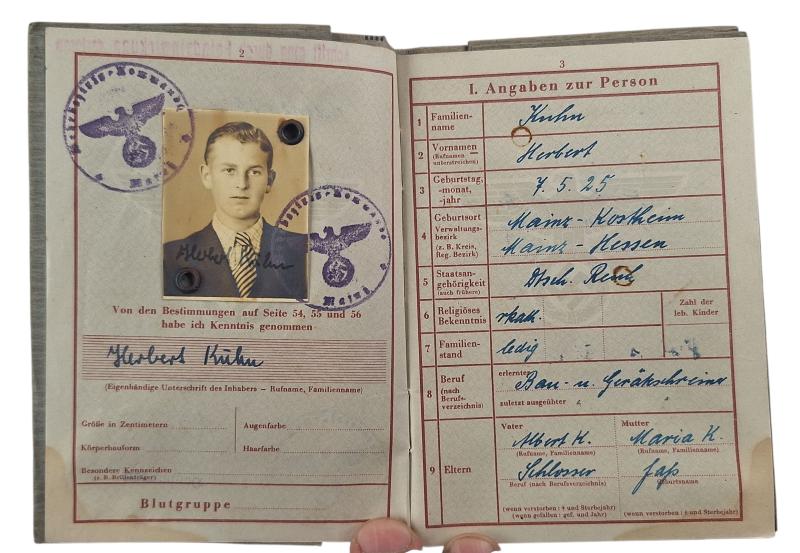 2
Wehrbezirks-Kommando
Mainz
Herbert Kühn
Wehrbezirks-Kommando
Mainz
Von den Bestimmungen auf Seite 54, 55 und 56
habe ich Kenntnis genommen
Herbert Kühn
(Eigenhändige Unterschrift des Inhabers – Rufname, Familienname)
Größe in Zentimetern
Augenfarbe
Körperbauform
Haarfarbe
Besondere Kennzeichen
(z. B. Brillenträger)
Blutgruppe
3
I. Angaben zur Person
1 Familien-
name
Kuhn
2 Vornamen
(Rufnamen
unterstreichen)
Herbert
3 Geburtstag,
-monat,
-jahr
7. 5. 25
4 Geburtsort
Verwaltungs-
bezirk
(z. B. Kreis,
Reg. Bezirk)
Mainz-Kostheim
Mainz-Hessen
5 Staatsan-
gehörigkeit
(auch frühere)
Dtsch. Reich
6 Religiöses
Bekenntnis
rkath.
Zahl der
leb. Kinder
7 Familien-
stand
ledig
8 Beruf
(nach
Berufs-
verzeichnis)
erlernter
Bau- u. Gerätschreiner
zuletzt ausgeübter
9 Eltern
Vater
Mutter
Albert K.
Maria K.
(Rufname, Familienname)
(Rufname, Familienname)
Schlosser
Faß
Beruf (nach Berufsverzeichnis)
Geburtsname
(wenn verstorben: † und Sterbejahr)
(wenn gefallen: gef. und Jahr)
(wenn verstorben: † und Sterbejahr)